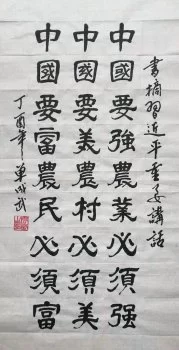 書摘習近平重要講話
中國要強農業必須强
中國要美農村必須美
中國要富農民必須富
丁酉年單成武